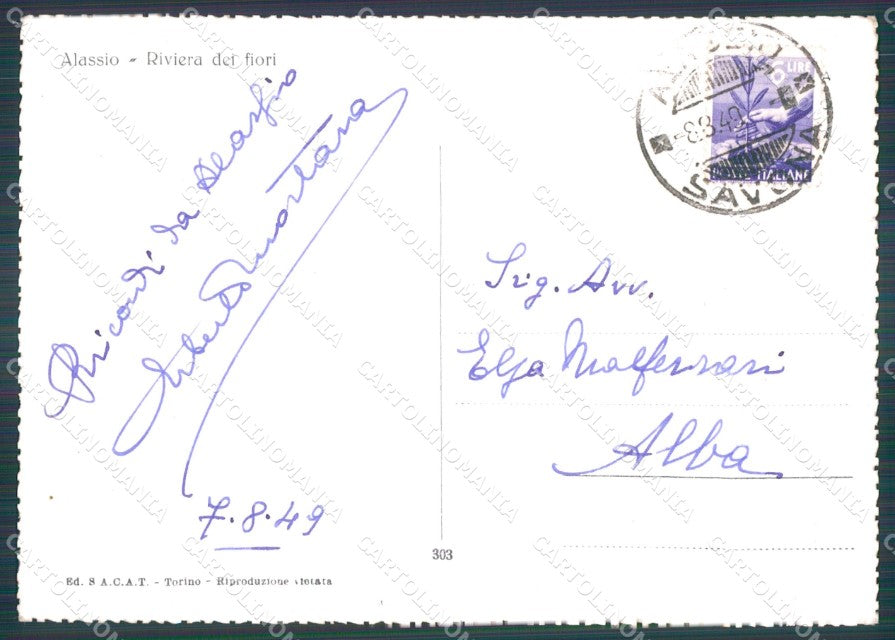 Alassio - Riviera dei fiori
Ricordi da Alassio
Umberto Montana
7.8.49
6 LIRE
ITALIANE
-8.8.49
SAVONA
Sig. Avv.
Elja Malferrari
Alba
303
Ed. S A.C.A.T. - Torino - Riproduzione vietata
CARTOLINOMANIA